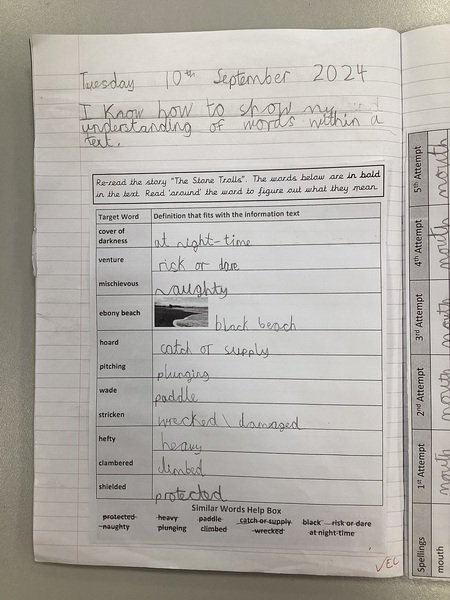 Tuesday 10th September 2024
I Know how to show my
understanding of words within a
text.
Re-read the story "The Stone Trolls". The words below are in bold
in the text. Read 'around' the word to figure out what they mean.
Target Word Definition that fits with the information text
cover of
darkness at night-time
venture rick or dare
mischievous naughty
ebony beach black beach
hoard catch or supply
pitching plunging
wade paddle
stricken wrecked \ damaged
hefty heavy
clambered climbed
shielded protected
Similar Words Help Box
protected heavy paddle catch or supply black risk or dare
naughty plunging climbed wrecked at night-time
VEC
Spellings 1st Attempt 2nd Attempt 3rd Attempt 4th Attempt 5th Attempt
mouth mouth mouth mouth mouth mouth